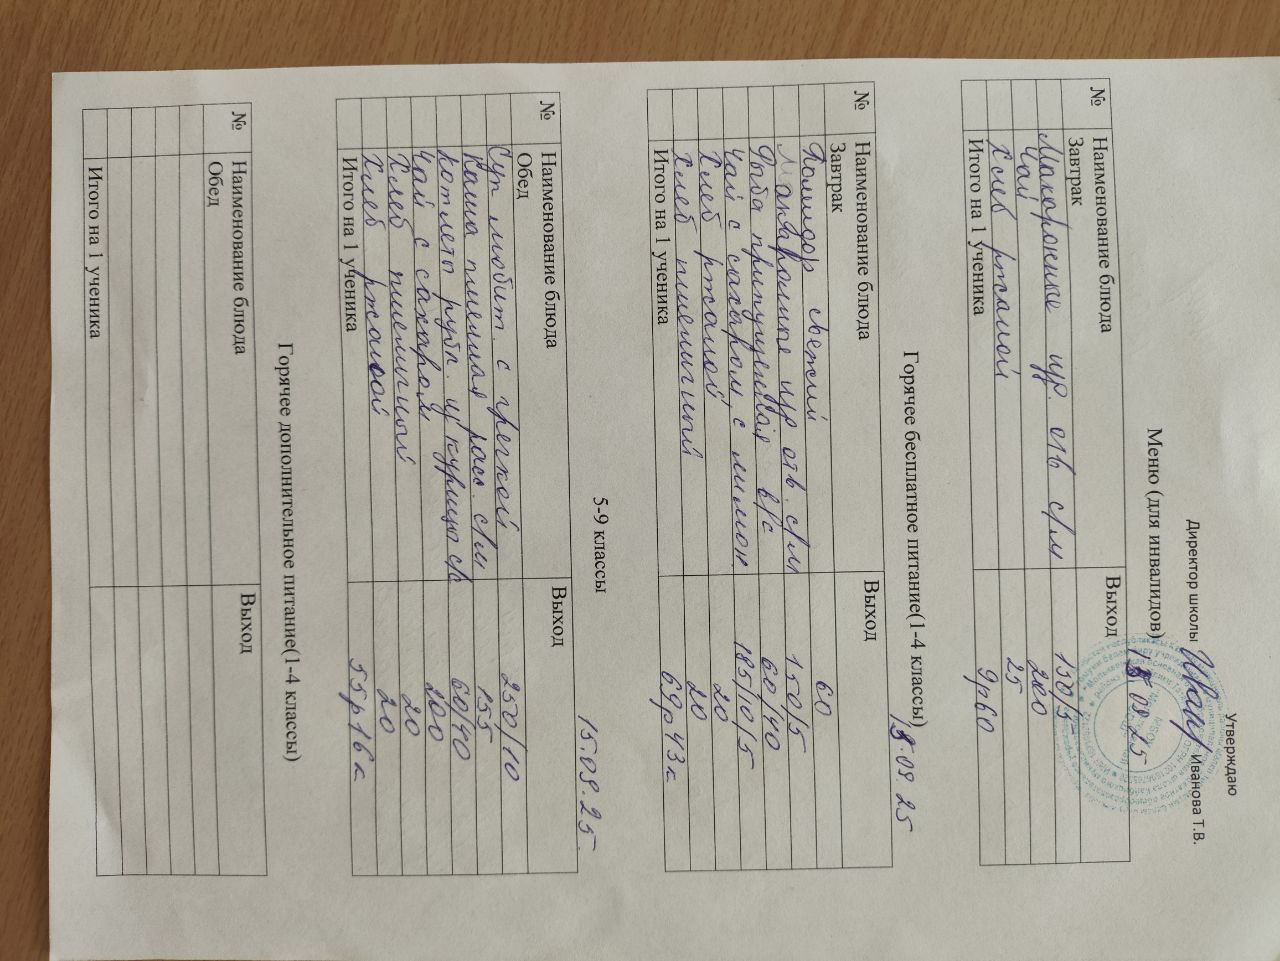 Утверждаю
Директор школы Иванова Т.В.
Меню (для инвалидов) 15.09.25
№ Наименование блюда Выход
Завтрак
Макаронные изд. отв с/м 150/5
Чай 200
Хлеб ржаной 25
Итого на 1 ученика 9р60
Горячее бесплатное питание(1-4 классы) 15.09.25
№ Наименование блюда Выход
Завтрак
Помидор свежий 60
Макаронные изд отв. с/м 150/5
Рыба припущенная в/с 60/40
Чай с сахаром, с лимон. 185/10/5
Хлеб ржаной 20
Хлеб пшеничный 20
Итого на 1 ученика 69р43к
5-9 классы 15.09.25.
№ Наименование блюда Выход
Обед
Суп с гречкой 250/10
Каша пшенная расс. с/м 155
Котлеты рубл. из курицы с/с 60/40
Чай с сахаром 200
Хлеб пшеничный 20
Хлеб ржаной 20
Итого на 1 ученика 55р16к
Горячее дополнительное питание(1-4 классы)
№ Наименование блюда Выход
Обед
Итого на 1 ученика